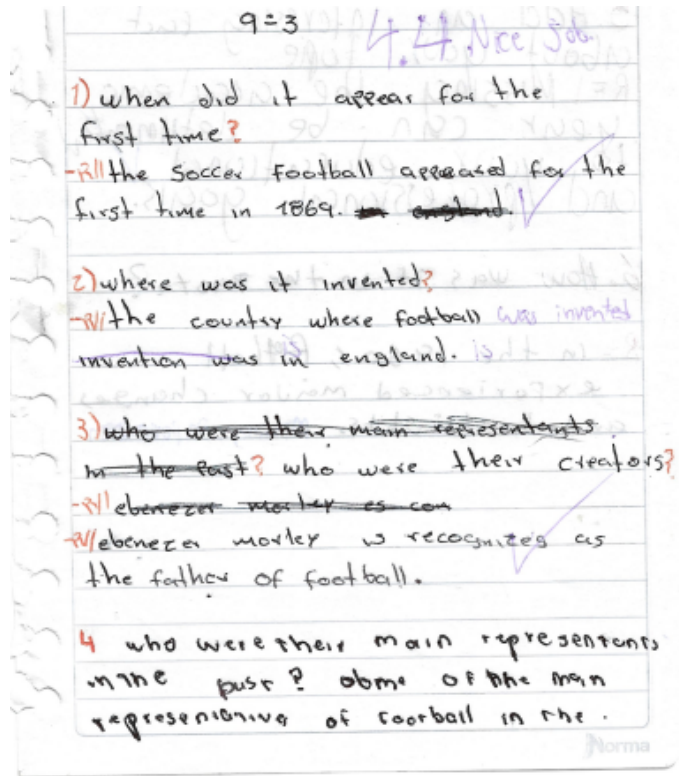 9=3
4.4. Nice job
1) when did it appear for the
first time?
-R// the soccer football appeared for the
first time in 1869. in england.
2) where was it invented?
-R// the country where football was invented
invention was in england. is
3) who were their main representants
in the past? who were their creators?
-R/ ebenezer morley es con
-R// ebenezer morley is recognizes as
the father of football.
4 who were their main representants
in the past? of the main
representative of football in the.
Norma